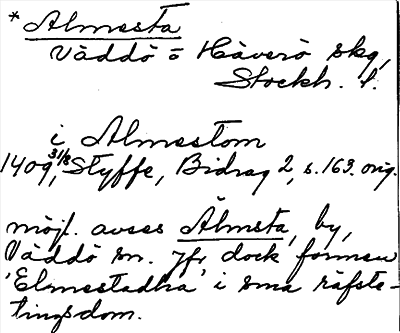 * Älmesta
Väddö o Häverö skg,
Stockh. l.
i Almestom
1409 31/8, Styffe, Bidrag 2, s. 163. orig.
möjl. avses Älmsta, by,
Väddö sn. Jfr dock formen
'Elmestadha' i sma räfste-
tingsdom.